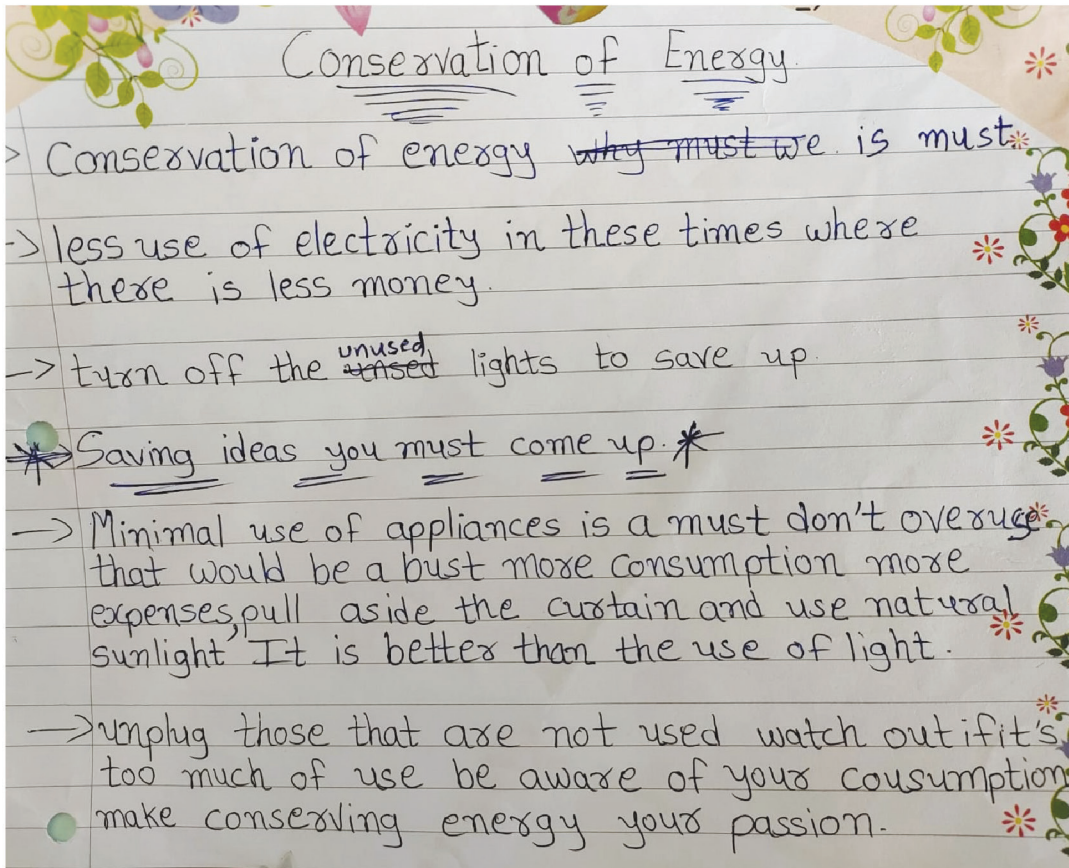 Conservation of Energy.
> Conservation of energy why must we is must
-> less use of electricity in these times where
there is less money.
-> turn off the unused unsed lights to save up.
* -> Saving ideas you must come up. *
-> Minimal use of appliances is a must don't overuse
that would be a bust more consumption more
expenses, pull aside the curtain and use natural
sunlight It is better than the use of light.
-> unplug those that are not used watch out if it's
too much of use be aware of your cousumption
make conserving energy your passion.